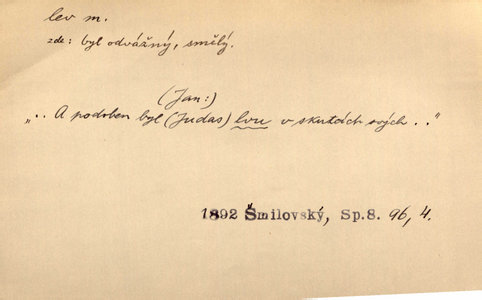 lev m.
zde: byl odvážný, smělý.
(Jan:)
„.. A podoben byl (Judas) lvu v skutcích svých . ."
1892 Šmilovský, Sp.8. 96, 4.